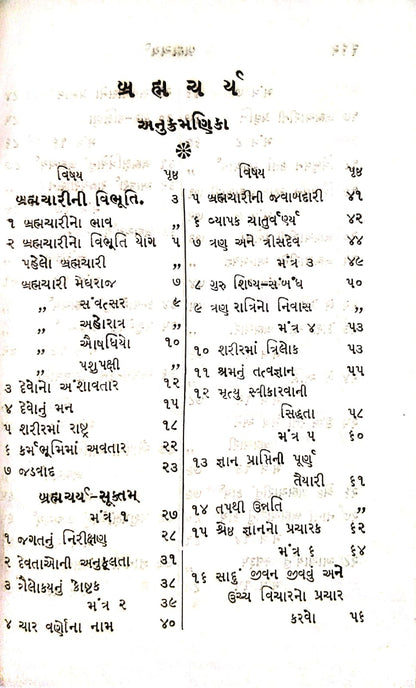 બ્રહ્મચર્ય
અનુક્રમણિકા
વિષય પૃષ્ઠ
બ્રહ્મચારીની વિભૂતિ. ૩
૧ બ્રહ્મચારીનો ભાવ ,,
૨ બ્રહ્મચારીનો વિભૂતિ યોગ ૫
પહેલો બ્રહ્મચારી ,,
બ્રહ્મચારી મેઘરાજ ૭
,, સંવત્સર ૯
,, અહોરાત્ર ,,
,, ઔષધિયો ૧૦
,, પશુપક્ષી ,,
૩ દેવોનો અંશાવતાર ૧૨
૪ દેવોનું મન ૧૫
૫ શરીરમાં રાષ્ટ્ર ૧૮
૬ કર્મભૂમિમાં અવતાર ૨૨
૭ જડવાદ ૨૩
બ્રહ્મચર્ય-સૂક્તમ્
મંત્ર ૧ ૨૭
૧ જગતનું નિરીક્ષણ ૨૮
૨ દેવતાઓની અનુકૂલતા ૩૧
૩ ત્રૈલોક્યનું કોષ્ટક ૩૮
મંત્ર ૨ ૩૯
૪ ચાર વર્ણોના નામ ૪૦
વિષય પૃષ્ઠ
૫ બ્રહ્મચારીની જવાબદારી ૪૧
૬ વ્યાપક ચાતુર્વર્ણ્ય ૪૨
૭ ત્રણ અને ત્રીસદેવ ૪૪
મંત્ર ૩ ૪૯
૮ ગુરુ શિષ્ય-સંબંધ ૫૦
૯ ત્રણ રાત્રિનો નિવાસ ,,
મંત્ર ૪ ૫૩
૧૦ શરીરમાં ત્રિલોક ૫૩
૧૧ શ્રમનું તત્વજ્ઞાન ૫૫
૧૨ મૃત્યુ સ્વીકારવાની
સિદ્ધતા ૫૮
મંત્ર ૫ ૬૦
૧૩ જ્ઞાન પ્રાપ્તિની પૂર્ણ
તૈયારી ૬૧
૧૪ તપથી ઉન્નતિ ,,
૧૫ શ્રેષ્ઠ જ્ઞાનનો પ્રચારક ૬૨
મંત્ર ૬ ૬૪
૧૬ સાદું જીવન જીવવું અને
ઉચ્ચ વિચારનો પ્રચાર
કરવો ૫૬